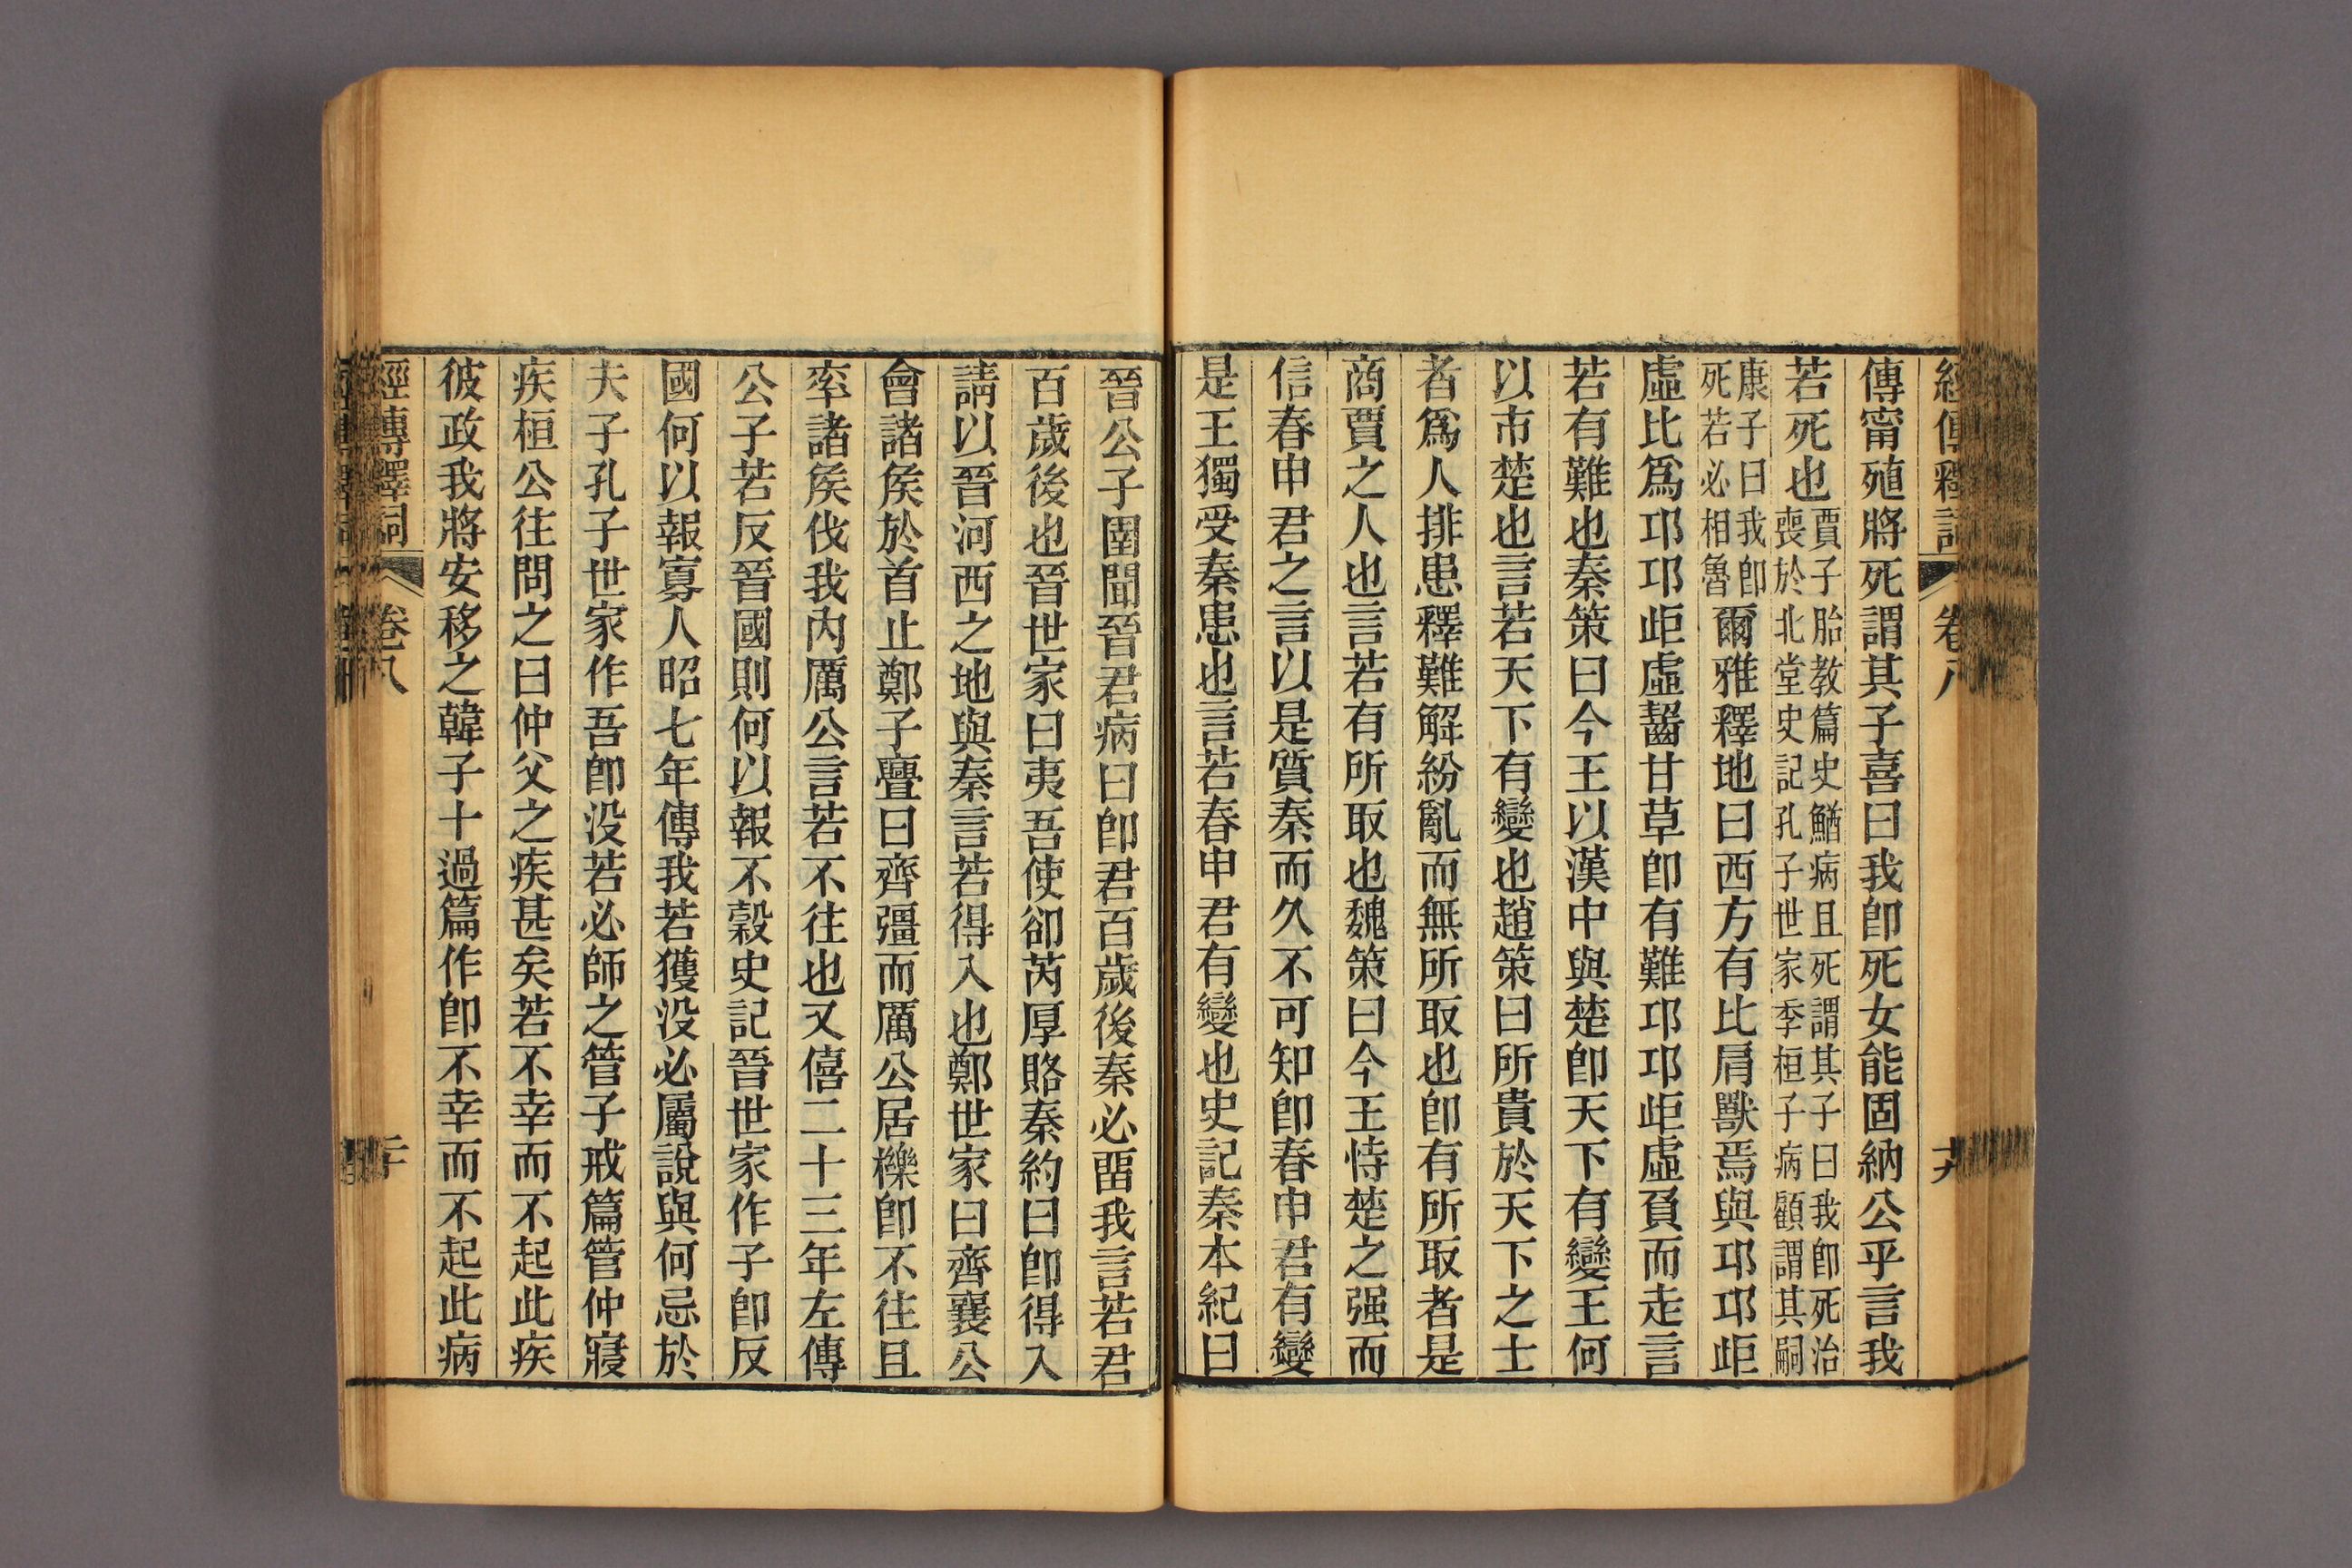 經傳釋詞 卷八 十九
傳甯殖將死謂其子喜曰我卽死女能固納公乎言我
若死也賈子胎教篇史鰌病且死謂其子曰我卽死治
喪於北堂史記孔子世家季桓子病顧謂其嗣
康子曰我卽
死若必相魯爾雅釋地曰西方有比肩獸焉與邛邛岠
虛比爲邛邛岠虛齧甘草卽有難邛邛岠虛負而走言
若有難也秦策曰今王以漢中與楚卽天下有變王何
以市楚也言若天下有變也趙策曰所貴於天下之士
者爲人排患釋難解紛亂而無所取也卽有所取者是
商賈之人也言若有所取也魏策曰今王恃楚之强而
信春申君之言以是質秦而久不可知卽春申君有變
是王獨受秦患也言若春申君有變也史記秦本紀曰
晉公子圉聞晉君病曰卽君百歲後秦必畱我言若君
百歲後也晉世家曰夷吾使卻芮厚賂秦約曰卽得入
請以晉河西之地與秦言若得入也鄭世家曰齊襄公
會諸矦於首止鄭子亹曰齊彊而厲公居櫟卽不往且
率諸矦伐我內厲公言若不往也又僖二十三年左傳
公子若反晉國則何以報不穀史記晉世家作子卽反
國何以報寡人昭七年傳我若獲没必屬說與何忌於
夫子孔子世家作吾卽没若必師之管子戒篇管仲寢
疾桓公往問之曰仲父之疾甚矣若不幸而不起此疾
彼政我將安移之韓子十過篇作卽不幸而不起此病
經傳釋詞 卷八 二十